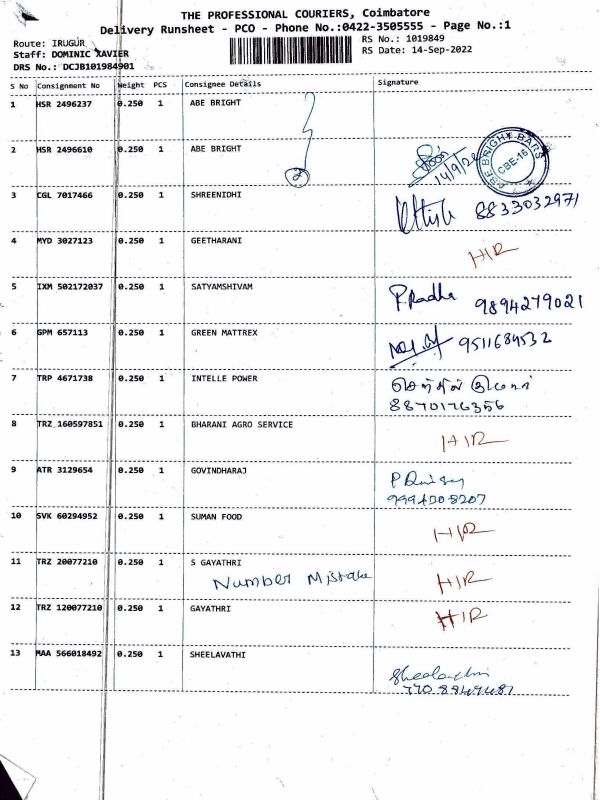 THE PROFESSIONAL COURIERS, Coimbatore
Delivery Runsheet - PCO - Phone No.:0422-3505555 - Page No.:1
Route: IRUGUR
Staff: DOMINIC XAVIER
DRS No.: DCJB101984901
RS No.: 1019849
RS Date: 14-Sep-2022
S No Consignment No Weight PCS Consignee Details Signature
1 HSR 2496237 0.250 1 ABE BRIGHT
2 HSR 2496610 0.250 1 ABE BRIGHT 2 14/9/22 CBE BRIGHT BARS CBE-16
3 CGL 7017466 0.250 1 SHREENIDHI 8833032971
4 MYD 3027123 0.250 1 GEETHARANI HIR
5 IXM 502172037 0.250 1 SATYAMSHIVAM P.Radha 9894279021
6 GPM 657113 0.250 1 GREEN MATTREX 9511684532
7 TRP 4671738 0.250 1 INTELLE POWER
8870176356
8 TRZ 160597851 0.250 1 BHARANI AGRO SERVICE HIR
9 ATR 3129654 0.250 1 GOVINDHARAJ
10 SVK 60294952 0.250 1 SUMAN FOOD HIR
11 TRZ 20077210 0.250 1 S GAYATHRI
Number Mistake HIR
12 TRZ 120077210 0.250 1 GAYATHRI HIR
13 MAA 566018492 0.250 1 SHEELAVATHI